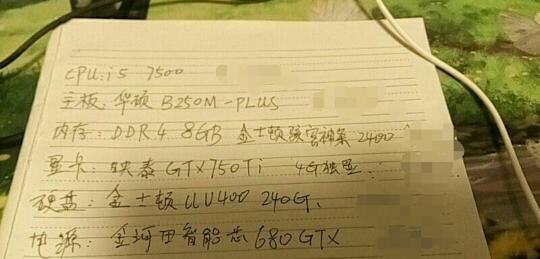 CPU: i5 7500
主板: 华硕 B250M-PLUS
内存: DDR4 8GB 金士顿骇客神条 2400
显卡: 映泰 GTX750Ti 4G独显.
硬盘: 金士顿 UV400 240G.
电源: 金河田智能芯 680GTX